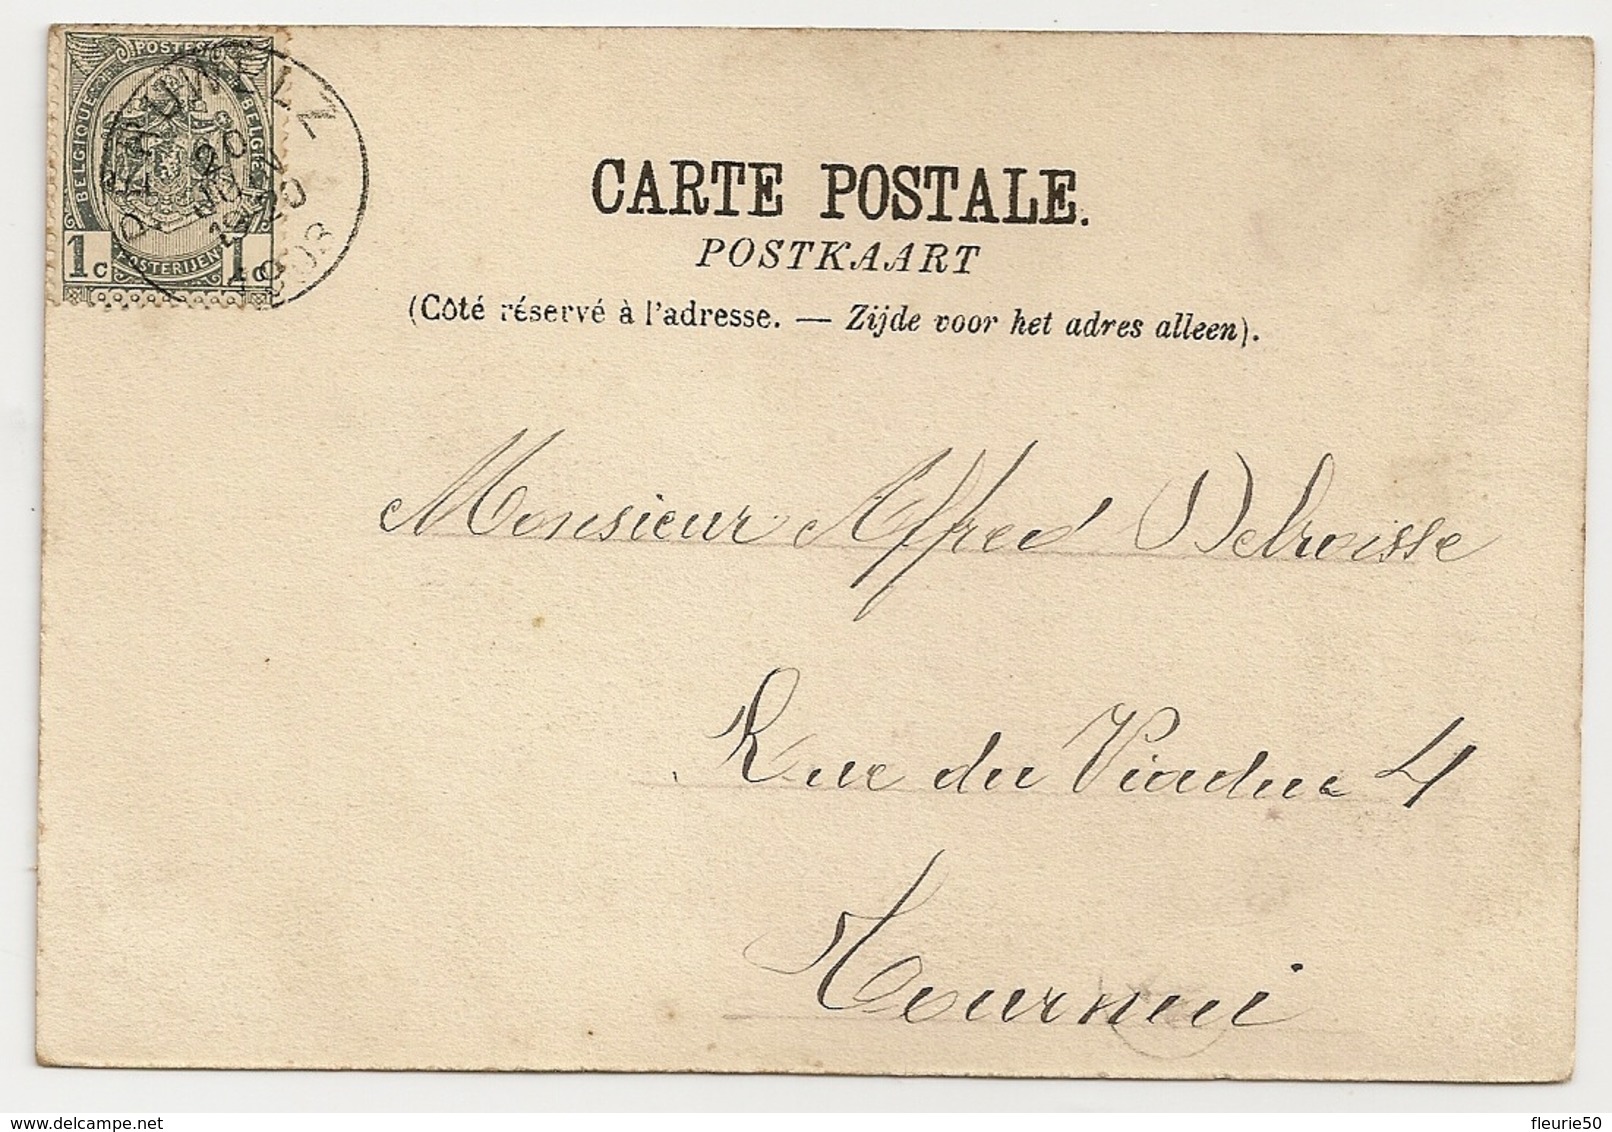 POSTES
BELGIQUE
BELGIË
1c
POSTERIJEN
PÉRUWELZ
20
1903
CARTE POSTALE.
POSTKAART
(Côté réservé à l'adresse. — Zijde voor het adres alleen).
Monsieur Alfred Delroisse
Rue du Viaduc 4
Tournai
fleurie50